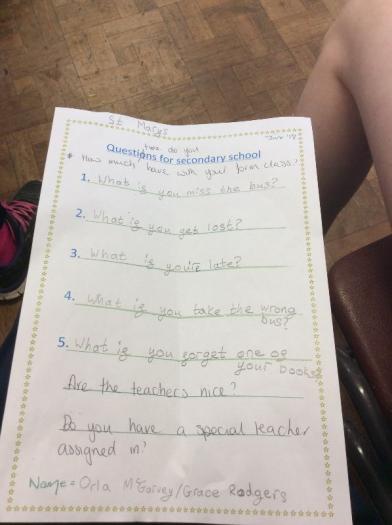 St Marys
June '18
time do you
Questions for secondary school
* How much have with your form class?
1. What is you miss the bus?
2. What is you get lost?
3. What is you're late?
4. What is you take the wrong
bus?
5. What is you forget one of
your books
Are the teachers nice?
Do you have a special teacher
assigned in?
Name = Orla McGarvey/Grace Rodgers